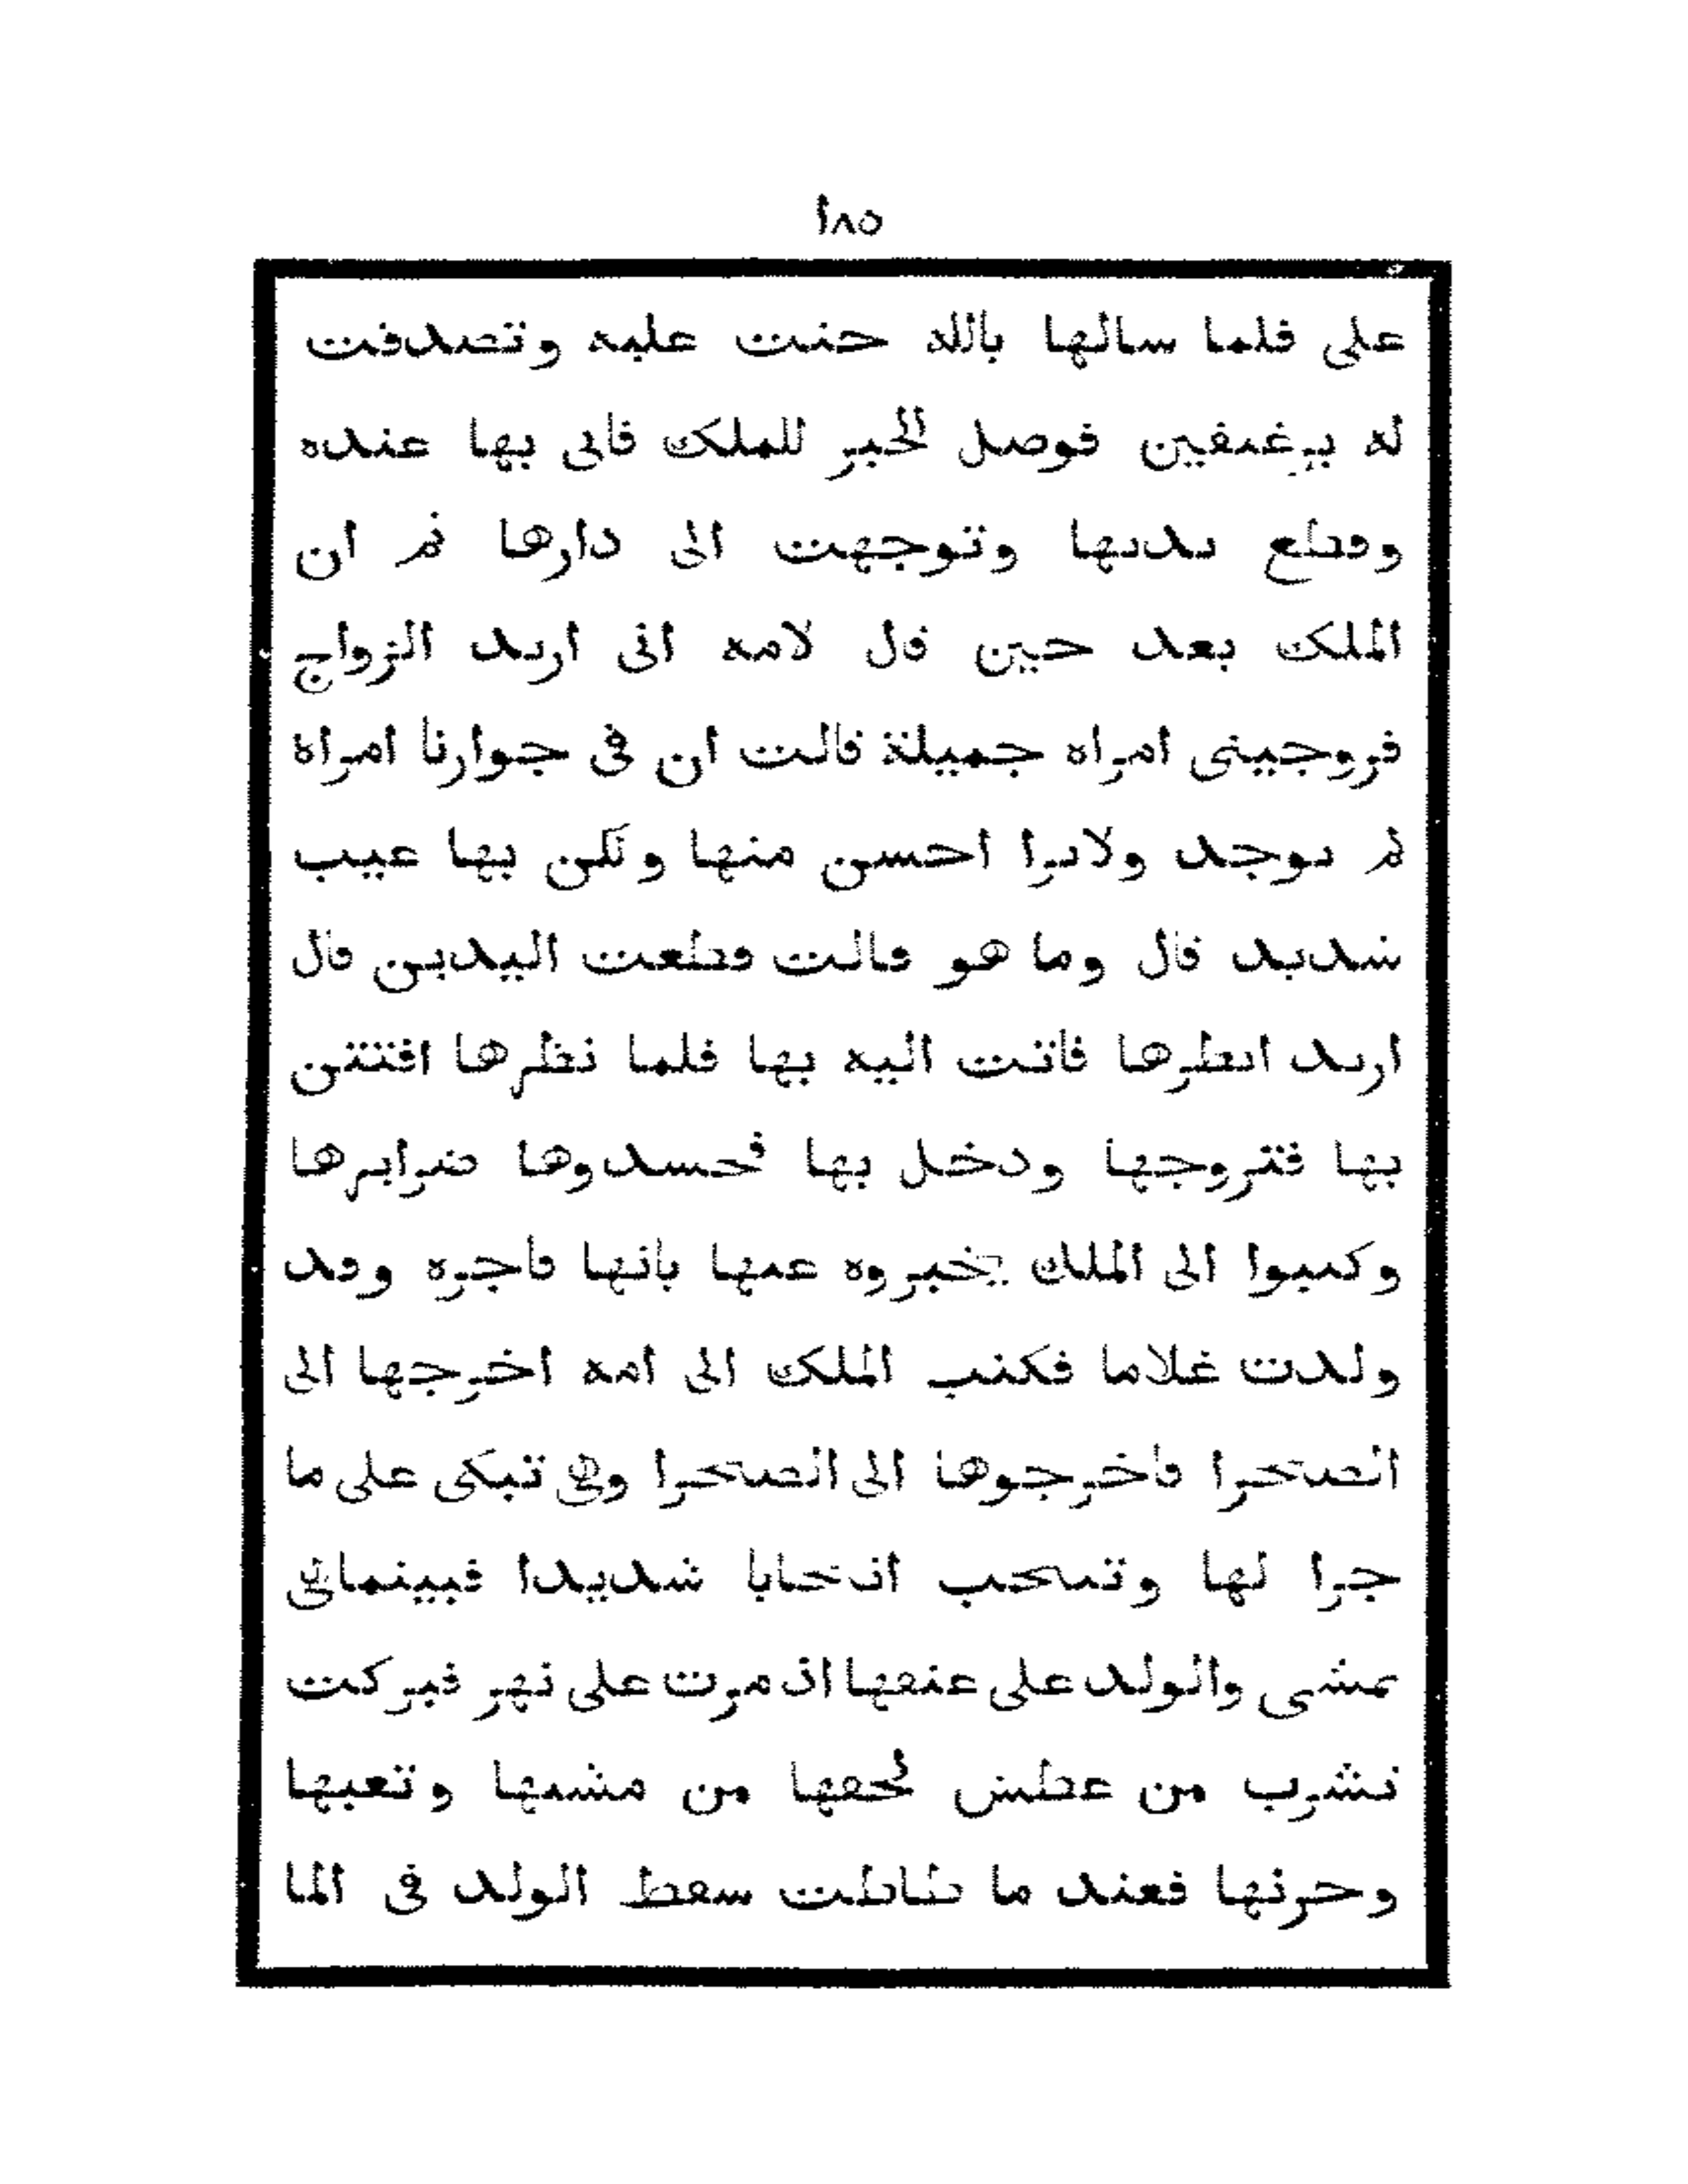 ١٨٥
على فلما سالها بالله حنت عليه وتصدقت
له برغيفين فوصل الخبر للملك فاتى بها عنده
وقطع يديها وتوجهت الى دارها ثم ان
الملك بعد حين قل لامه انى اريد الزواج
فزوجينى امراه جميلة قالت ان فى جوارنا امراه
لم يوجد ولايرا احسن منها ولكن بها عيب
شديد قال وما هو قالت قطعت اليدين قال
اريد انظرها فاتت اليه بها فلما نظرها افتتن
بها فتزوجها ودخل بها فحسدوها ضرايرها
وكتبوا الى الملك يخبروه عنها بانها فاجره وقد
ولدت غلاما فكتب الملك الى امه اخرجها الى
الصحرا فاخرجوها الى الصحرا وهى تبكى على ما
جرا لها وتنتحب انتحابا شديدا فبينماهى
تمشى والولد على عنقها اذ مرت على نهر فبركت
تشرب من عطش لحقها من مشيها وتعبها
وحزنها فعند ما طاطت سقط الولد فى الما